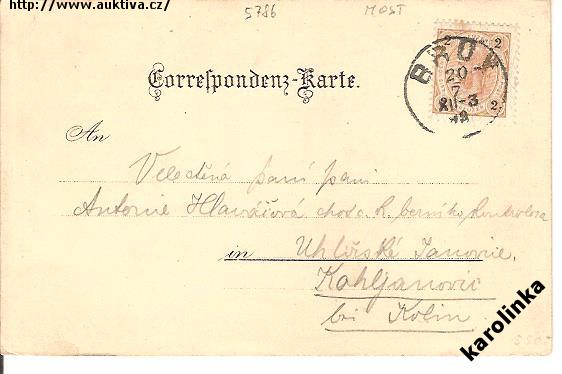 http://www.auktiva.cz/
5786
MOST
2 2
BRÜX
20
7
XII-3
98
2
Correspondenz-Karte.
An
Velectěná paní paní
Antonie Hlaváčová choť c. k. berního kontrolora
in Uhlířské Janovice,
Kohljanovic
bei Kolin.
karolinka